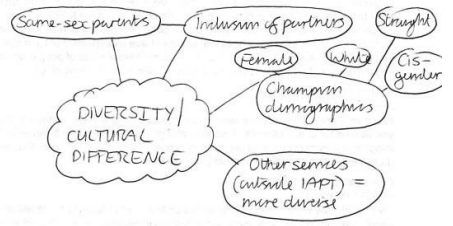 Same-sex parents
Inclusion of partners
Straight
Female
White
Cis-
gender
Champion
demographics
DIVERSITY/
CULTURAL
DIFFERENCE
Other services
(outside IAPT) =
more diverse